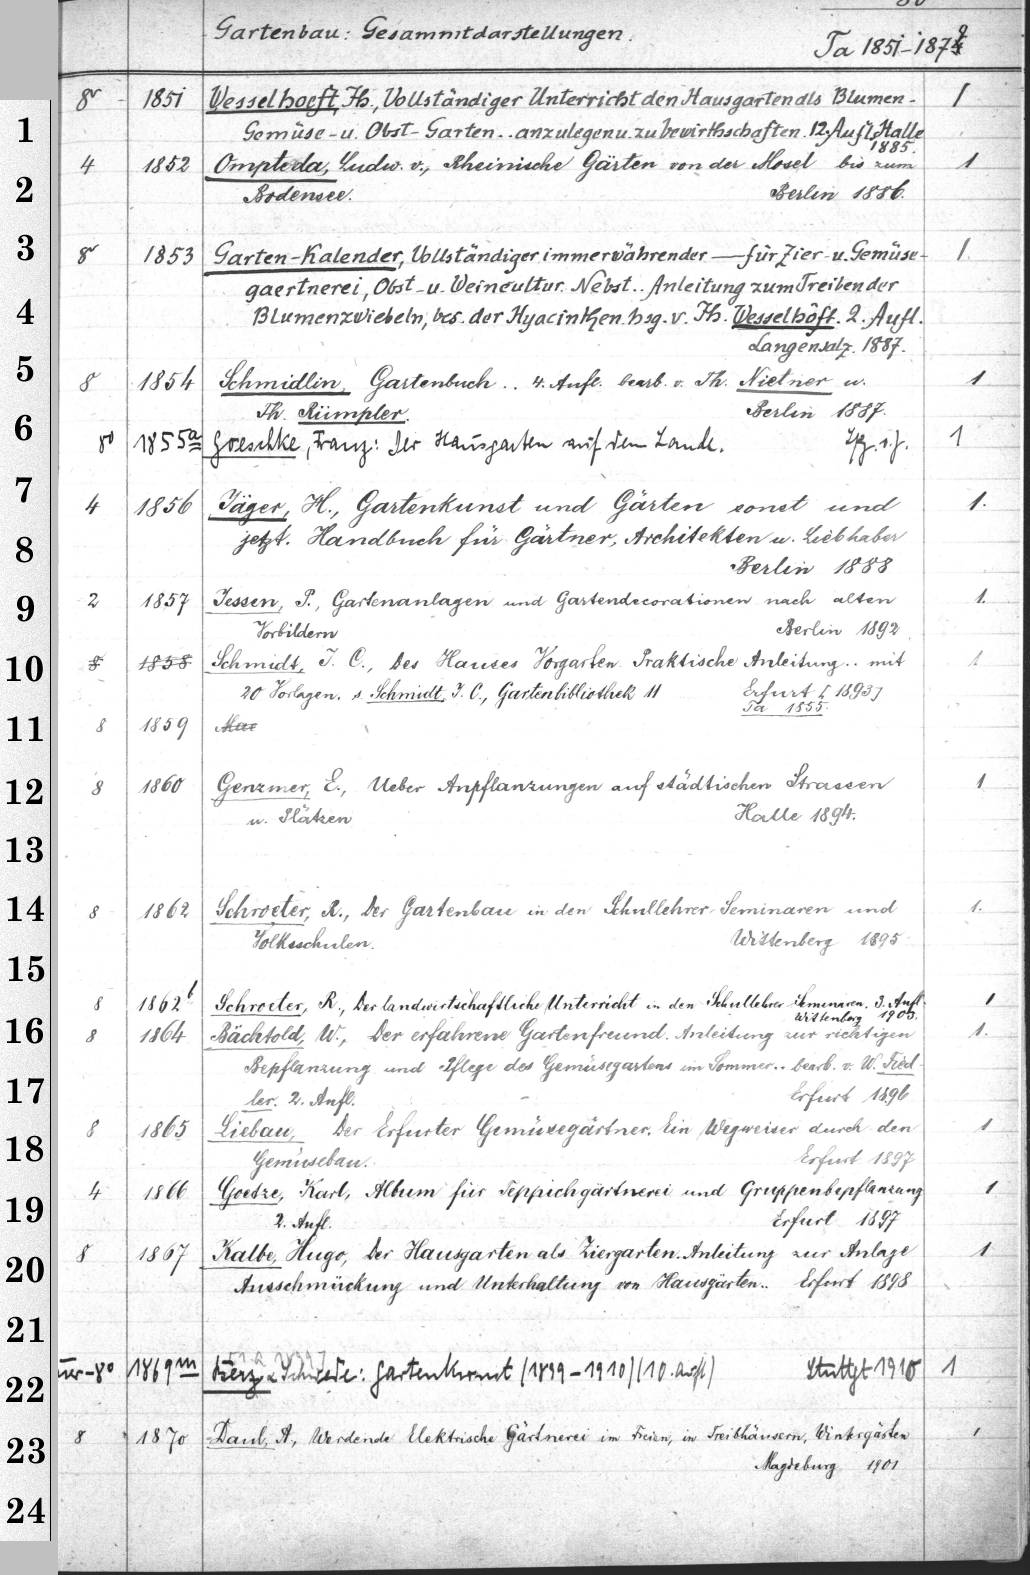 Gartenbau: Gesammtdarstellungen.
Ta 1851-1874
8° 1851 Wesselhoeft, Th., Vollständiger Unterricht den Hausgarten als Blumen- 1
1 Gemüse- u. Obst-Garten.. anzulegen u. zu bewirthschaften. 12. Aufl. Halle
1885.
4 1852 Ompteda, Ludw. v., Rheinische Gärten von der Mosel bis zum 1
2 Bodensee. Berlin 1886.
3 8° 1853 Garten-Kalender, Vollständiger immerwährender — für Zier- u. Gemüse- 1.
gaertnerei, Obst- u. Weincultur. Nebst.. Anleitung zum Treiben der
4 Blumenzwiebeln, bes. der Hyacinthen. hsg. v. Th. Wesselhöft. 2. Aufl.
Langensalz. 1887.
5 8 1854 Schmidlin, Gartenbuch .. 4. Aufl. bearb. v. Th. Nietner u. 1
Th. Rümpler. Berlin 1887.
6 8° 1855a Goeschke, Franz: Der Hausgarten auf dem Lande. Lpz. s. j. 1
7 4 1856 Jäger, H., Gartenkunst und Gärten sonst und 1.
8 jetzt. Handbuch für Gärtner, Architekten u. Liebhaber
Berlin 1888
9 2 1857 Jessen, P., Gartenanlagen und Gartendecorationen nach alten 1.
Vorbildern Berlin 1892
10 8 1858 Schmidt, J. C., Des Hauses Vorgarten. Praktische Anleitung.. mit 1
20 Vorlagen. s. Schmidt, J. C., Gartenbibliothek 11 Erfurt [1893]
Ta 1855.
11 8 1859
12 8 1860 Genzmer, E., Ueber Anpflanzungen auf städtischen Strassen 1
u. Plätzen Halle 1894.
13
14 8 1862 Schroeter, R., Der Gartenbau in den Schullehrer-Seminaren und 1.
Volksschulen. Wittenberg 1895
15
8 1862b Schroeter, R., Der landwirtschaftliche Unterricht in den Schullehrer-Seminaren. 3. Aufl. 1
Wittenberg 1903.
16 8 1864 Bächtold, W., Der erfahrene Gartenfreund. Anleitung zur richtigen 1.
Bepflanzung und Pflege des Gemüsegartens im Sommer.. bearb. v. W. Tied-
17 ler. 2. Aufl. Erfurt 1896
8 1865 Liebau, Der Erfurter Gemüsegärtner. Ein Wegweiser durch den 1
18 Gemüsebau. Erfurt 1897
4 1866 Goetze, Karl, Album für Teppichgärtnerei und Gruppenbepflanzung 1
19 2. Aufl. Erfurt 1897
8 1867 Kalbe, Hugo, Der Hausgarten als Ziergarten. Anleitung zur Anlage 1
20 Ausschmückung und Unterhaltung von Hausgärten.. Erfurt 1898
21
quer-8° 1869m & Schwede: Gartenkunst (1899-1910) (10. Aufl) Stuttgt 1910 1
22
23 8 1870 Daul, A., Werdende Elektrische Gärtnerei im Freien, in Treibhäusern, Wintergärten 1
Magdeburg 1901
24